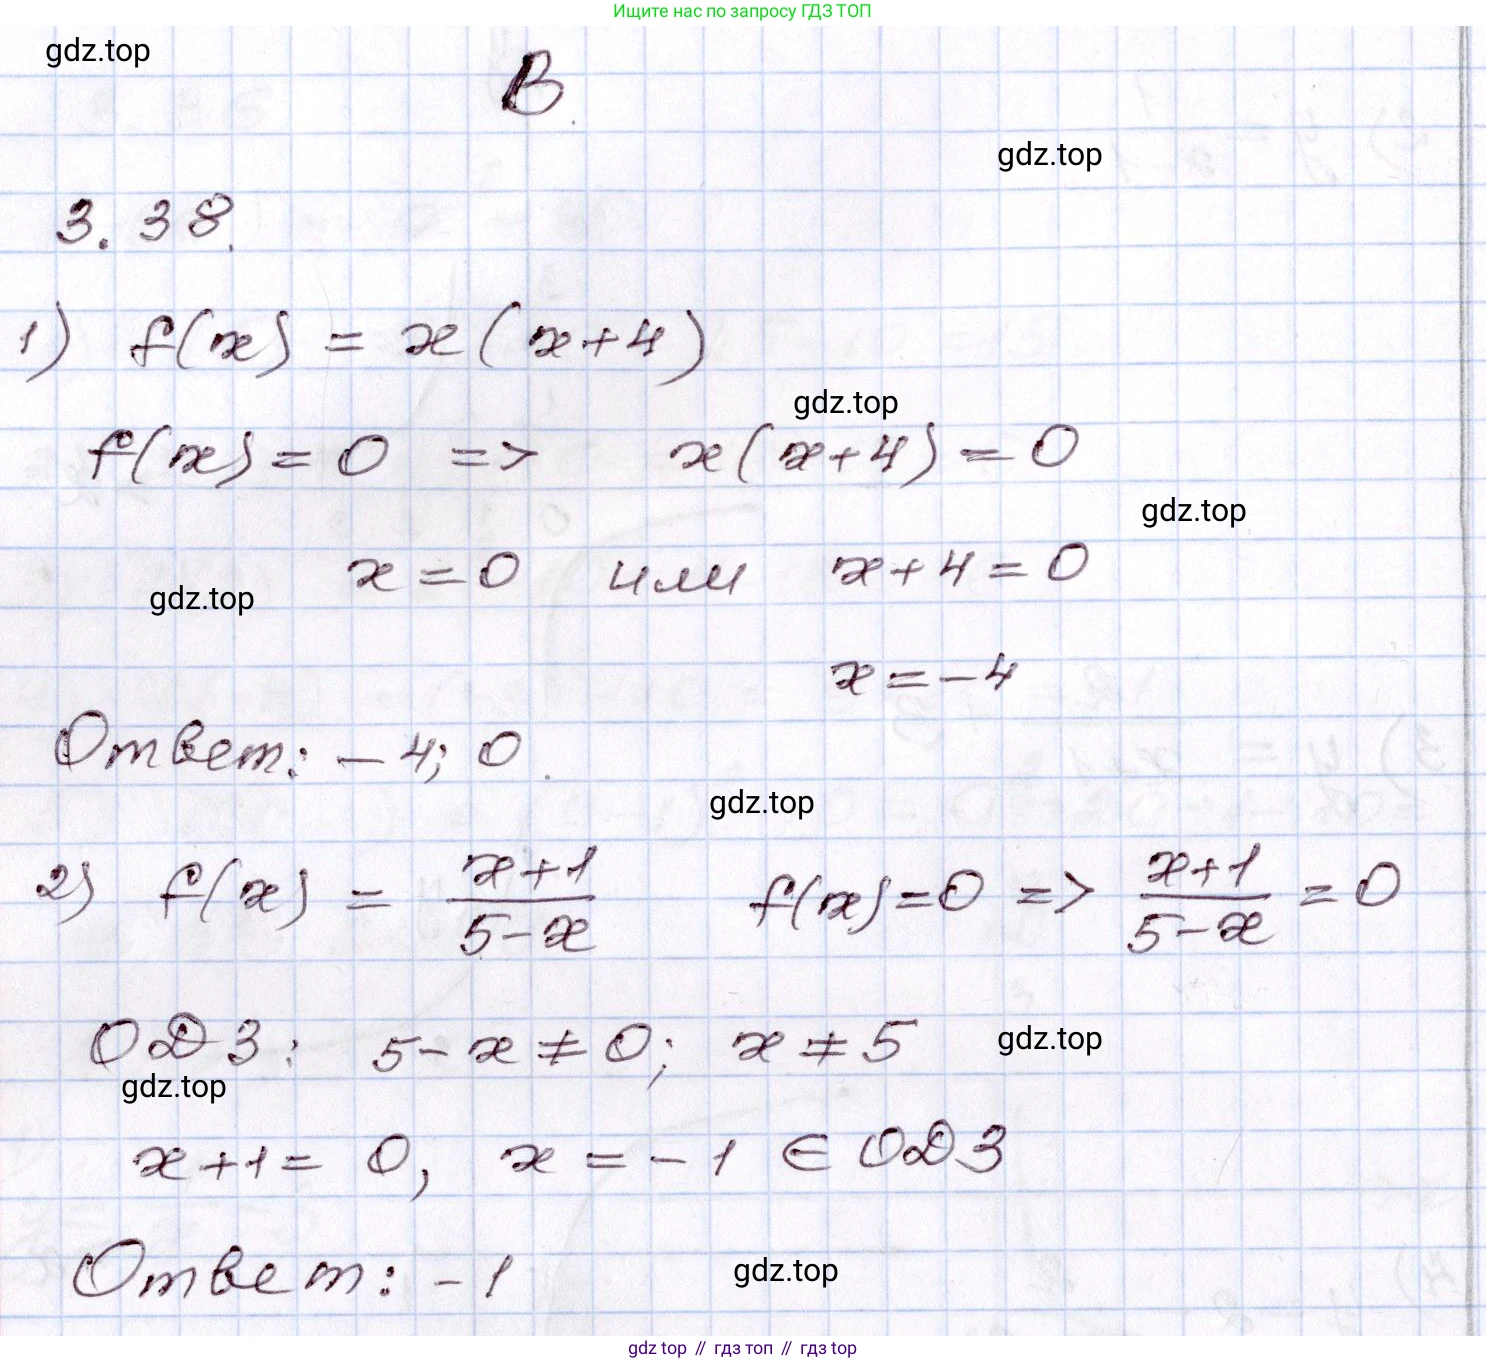 Ищите нас по запросу ГДЗ ТОП
gdz.top
В
gdz.top
3.38.
1) f(x) = x(x+4)
gdz.top
f(x) = 0 => x(x+4) = 0
gdz.top
x = 0 или x+4 = 0
gdz.top
x = -4
Ответ: -4; 0.
gdz.top
2) f(x) = (x+1)/(5-x) f(x) = 0 => (x+1)/(5-x) = 0
ОДЗ: 5-x ≠ 0; x ≠ 5
gdz.top
gdz.top
x+1 = 0, x = -1 ∈ ОДЗ
Ответ: -1
gdz.top
gdz.top // гдз топ // гдз top